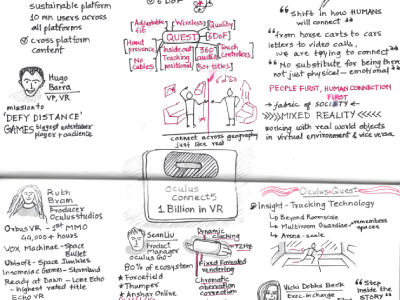 sustainable platform
10 mn users across
all platforms
cross platform
content
Hugo
Barra
VP, VR
mission to
'DEFY DISTANCE'
GAMES biggest entertainer
player + audience
6 DoF
Adjustable
fit
Wireless
Quality
QUEST
6DoF
Hand
presence
Inside out
Tracking
positional
360°
audio
Touch
controllers
No
cables
50+ titles
connect across geography
just like real
"Shift in how HUMANS
will connect"
"From horse carts to cars
letters to video calls,
we are trying to connect"
"No substitute for being there
not just physical - emotional"
PEOPLE FIRST, HUMAN CONNECTION
FIRST
fabric of SOCIETY
MIXED REALITY
working with real world objects
in virtual environment & vice versa
oculus
connect5
1 Billion in VR
Ruth
Bram
Producer
Oculus studios
Orbus VR - 1st MMO
44,000 + hours
VOX Machinae - Space
Bullet
Ubisoft - Space Junkies
Insomniac Games - Stormland
Ready at Dawn - Lone Echo
- highest rated title
Echo VR
Sean Liu
Product
manager
Oculus Go
80% of ecosystem
* Forcefield
* Thumper
* Anshar Online
Dynamic
clocking
72Hz
Fixed Foveated
rendering
Chromatic
aberration
correction
Oculus Quest
Insight - Tracking Technology
Beyond Roomscale
Multiroom Guardian - remembers
spaces
Arena - scale
Vicki Dobbs Beck
Exec. in charge
"Step
inside the
STORY"